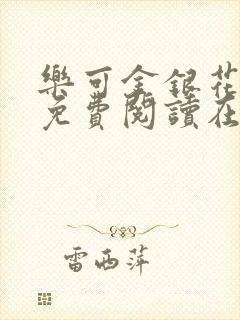 樂可金銀花
免費閱讀在
雷西萍